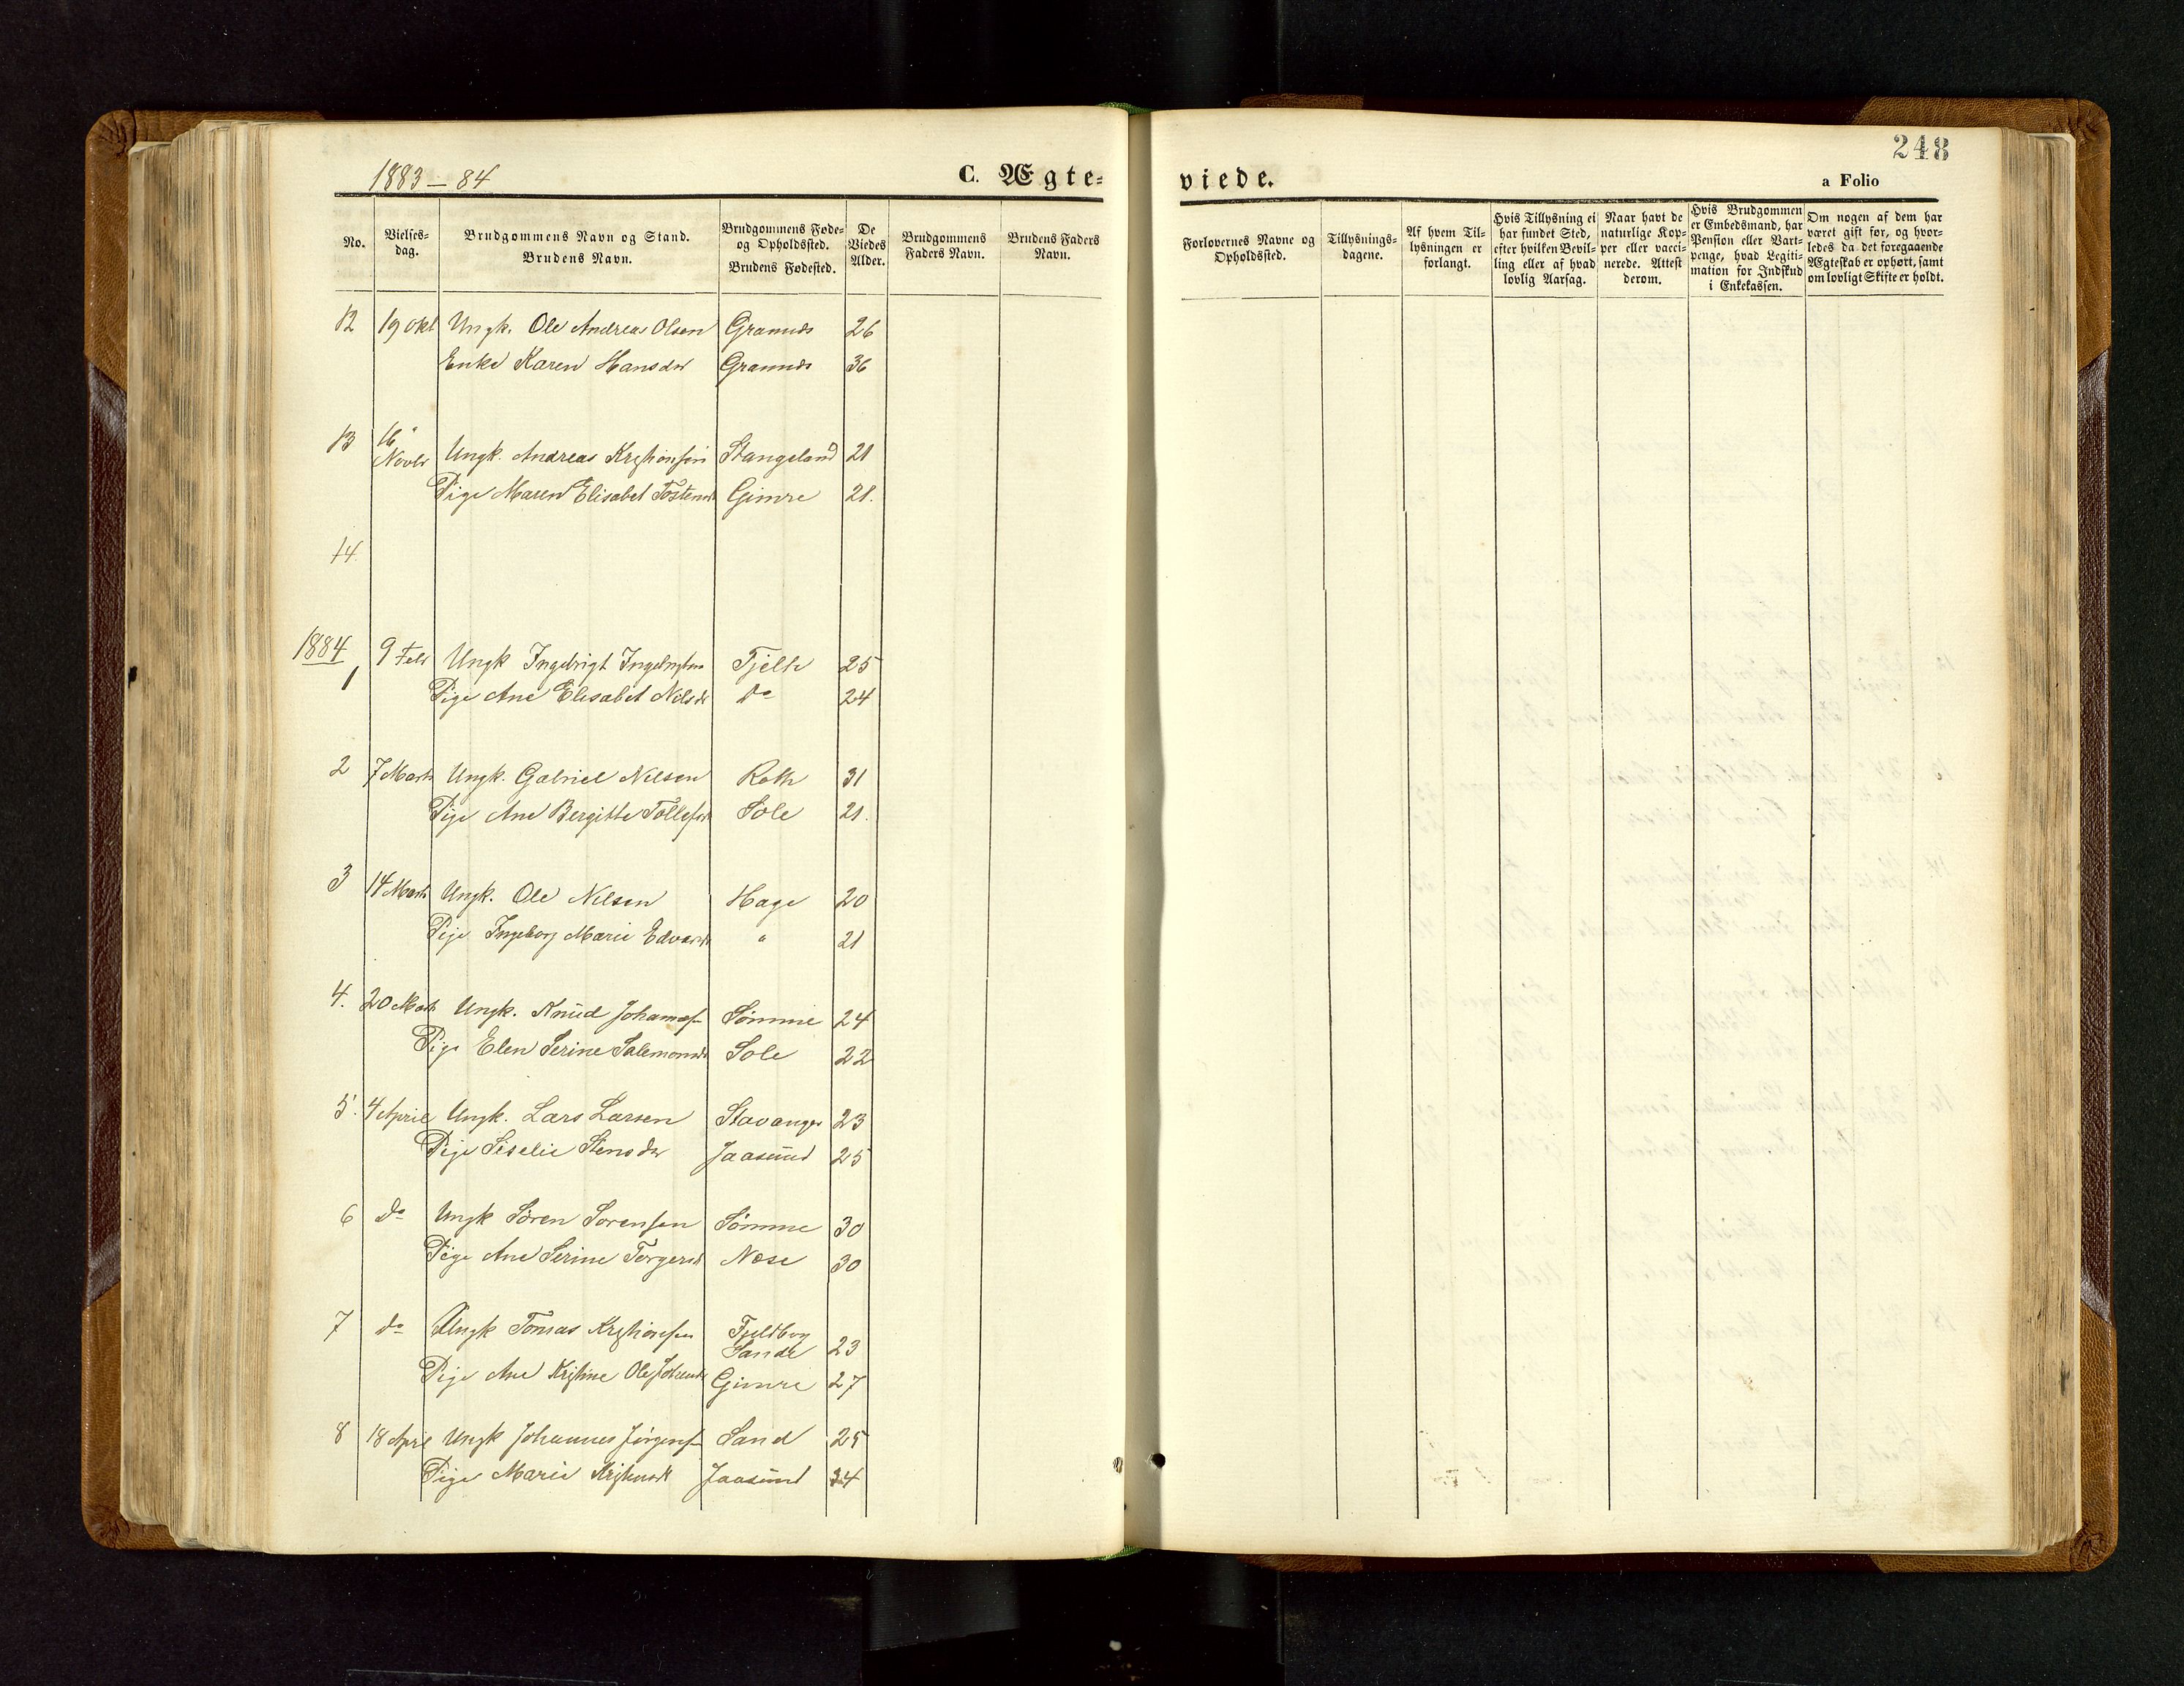 1883–84
C. Ægte-
No.
Vielses-
dag.
Brudgommens Navn og Stand.
Brudens Navn.
Brudgommens Føde-
og Opholdssted.
Brudens Fødested.
De
Viedes
Alder.
Brudgommens
Faders Navn.
Brudens Faders
Navn.
12 19 Okt Ungk. Ole Andreas Olsen Grannes 26
Enke Karen Hansdr Grannes 36
13 16
Novbr Ungk. Andreas Kristiansen Stangeland 21
Pige Maren Elisabet Tostensd Gimre 21.
14.
1884
1 9 Febr Ungk Ingebrigt Ingebrigtsen Tjelte 25
Pige Ane Elisabet Nilsdr do 24
2 7 Marts Ungk. Gabriel Nilsen Roth 31
Pige Ane Bergitte Tollefsd Sole 21.
3 14 Marts Ungk. Ole Nilsen Hage 20
Pige Ingeborg Marie Edvardsd " 21
4. 20 Marts Ungk. Knud Johannesn Sömme 24
Pige Elen Serine Salemonsd Sole 22
5. 4 April Ungk. Lars Larsen Stavanger 23
Pige Siselie Stensdr Jaasund 25
6 do Ungk Sören Sorensen Sömme 30
Pige Ane Serine Torgersd Nese 30
7 do Ungk Tomas Kristiansen Fjeldbog
Sande 23
Pige Ane Kristine Ole Johansdr Gimre 27
8 18 April Ungk Johannes Jörgensn Sand 25
Pige Marie Jaasund 24
248
viede.
a Folio
Forlovernes Navne og
Opholdssted.
Tillysnings-
dagene.
Af hvem Til-
lysningen er
forlangt.
Hvis Tillysning ei
har fundet Sted,
efter hvilken Bevil-
ling eller af hvad
lovlig Aarsag.
Naar havt de
naturlige Kop-
per eller vacci-
nerede. Attest
derom.
Hvis Brudgommen
er Embedsmand, har
Pension eller Vart-
penge, hvad Legiti-
mation for Indskud
i Enkekassen.
Om nogen af dem har
været gift før, og hvor-
ledes da det foregaaende
Ægteskab er ophørt, samt
om lovligt Skifte er holdt.